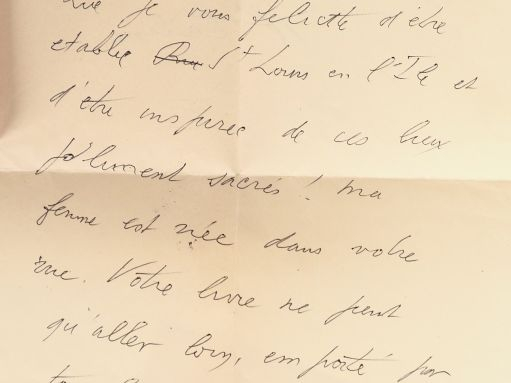 Que je vous félicite d'être
etablie St Louis en l'Ile et
d'être inspirée de ces lieux
joliment sacrés ! Ma
femme est née dans votre
rue. Votre livre ne peut
qu'aller loin, emporté par